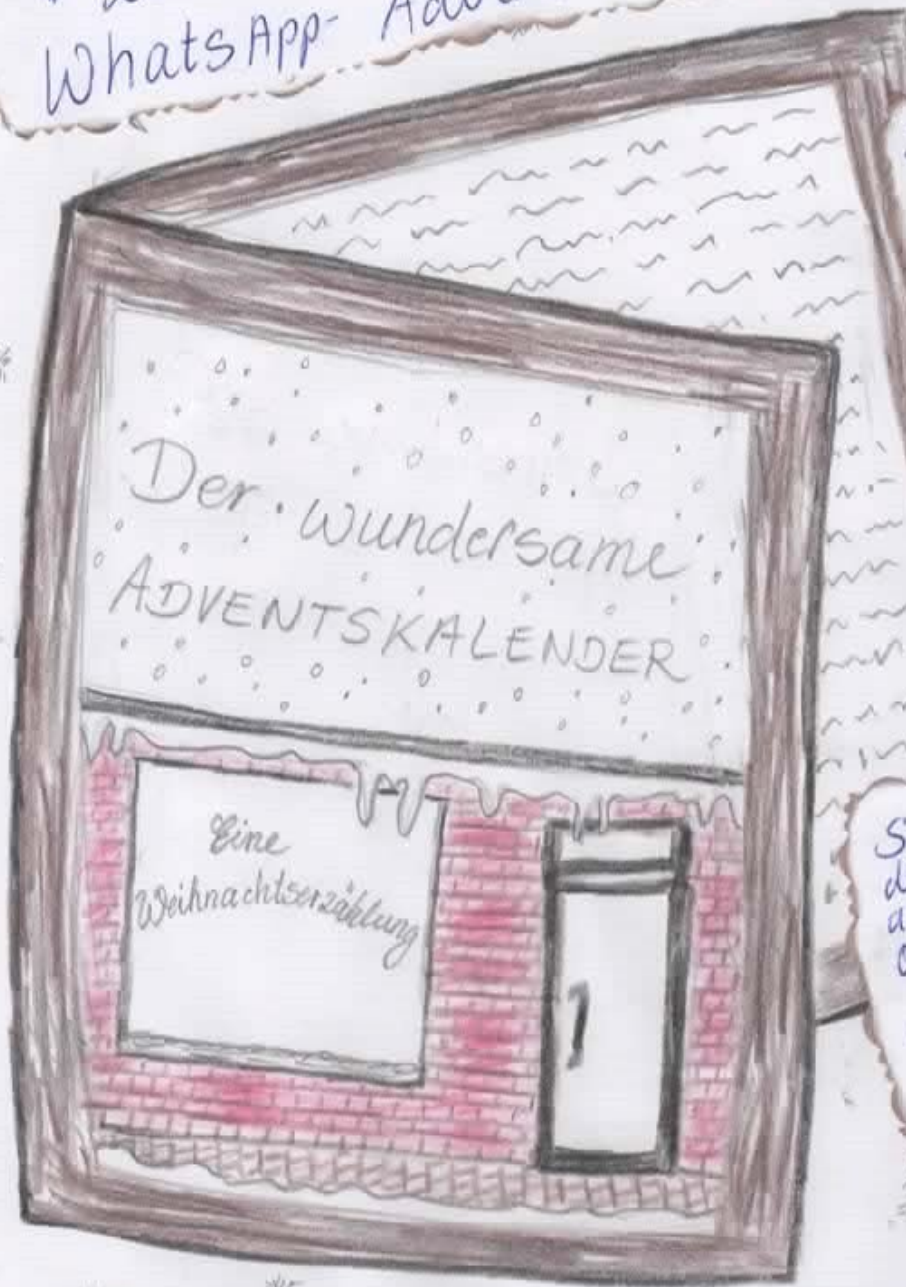 WhatsApp-
Der wundersame
ADVENTSKALENDER
Eine
Weihnachtserzählung